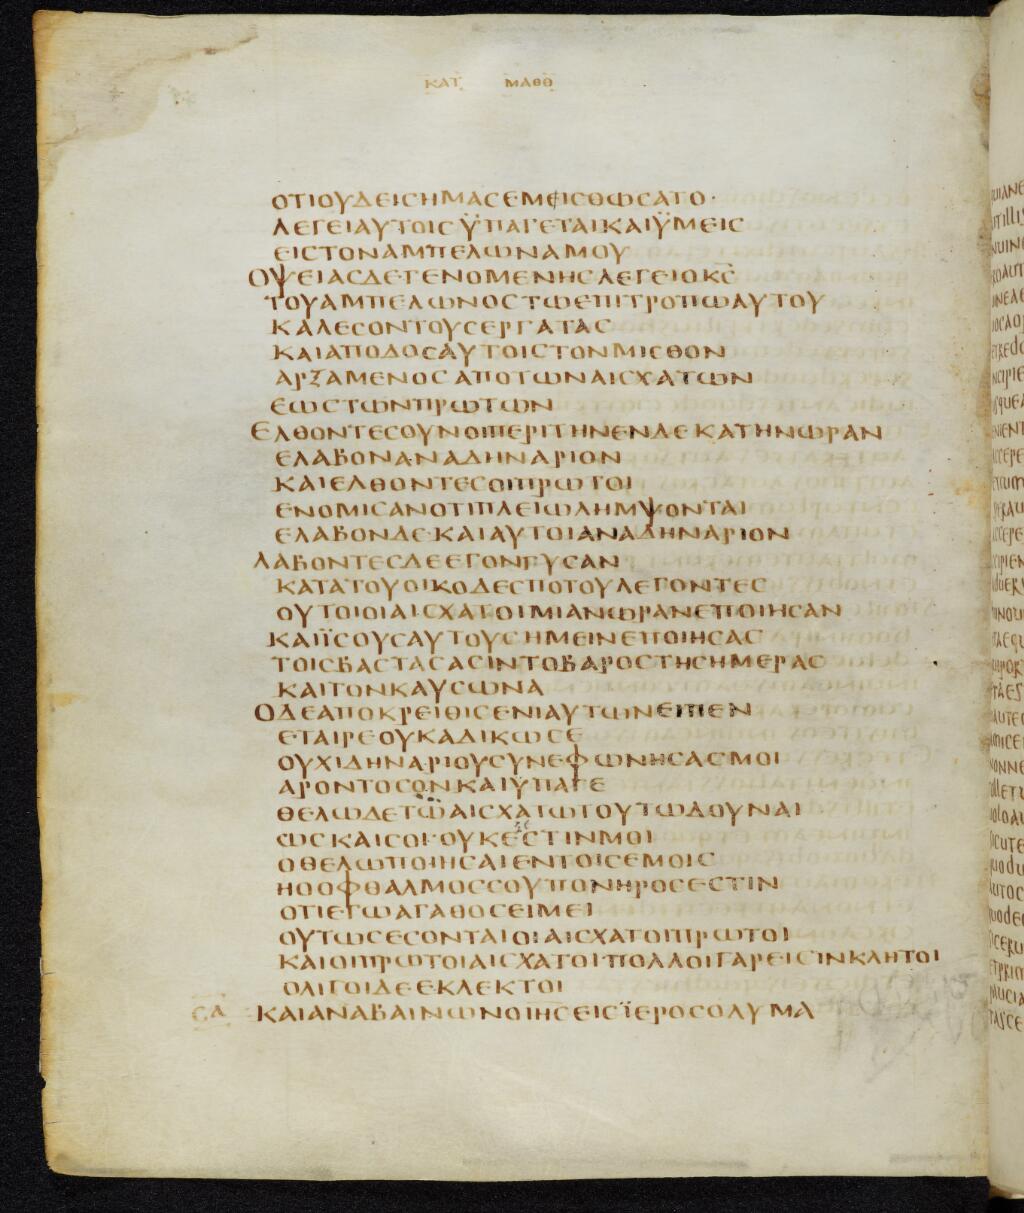 ΚΑΤ ΜΑΘΘ
ΟΤΙΟΥΔΕΙCΗΜΑCΕΜΕΙCΘΩCΑΤΟ·
ΛΕΓΕΙΑΥΤΟΙCΫΠΑΓΕΤΑΙΚΑΙΫΜΕΙC
ΕΙCΤΟΝΑΜΠΕΛΩΝΑΜΟΥ
ΟΨΕΙΑCΔΕΓΕΝΟΜΕΝΗCΛΕΓΕΙΟΚC
ΤΟΥΑΜΠΕΛΩΝΟCΤΩΕΠΙΤΡΟΠΩΑΥΤΟΥ
ΚΑΛΕCΟΝΤΟΥCΕΡΓΑΤΑC
ΚΑΙΑΠΟΔΟCΑΥΤΟΙCΤΟΝΜΙCΘΟΝ
ΑΡΞΑΜΕΝΟCΑΠΟΤΩΝΑΙCΧΑΤΩΝ
ΕΩCΤΩΝΠΡΩΤΩΝ
ΕΛΘΟΝΤΕCΟΥΝΟΙΠΕΡΙΤΗΝΕΝΔΕΚΑΤΗΝΩΡΑΝ
ΕΛΑΒΟΝΑΝΑΔΗΝΑΡΙΟΝ
ΚΑΙΕΛΘΟΝΤΕCΟΙΠΡΩΤΟΙ
ΕΝΟΜΙCΑΝΟΤΙΠΛΕΙΩΛΗΜΨΟΝΤΑΙ
ΕΛΑΒΟΝΔΕΚΑΙΑΥΤΟΙΑΝΑΔΗΝΑΡΙΟΝ
ΛΑΒΟΝΤΕCΔΕΕΓΟΝΓΥCΑΝ
ΚΑΤΑΤΟΥΟΙΚΟΔΕCΠΟΤΟΥΛΕΓΟΝΤΕC
ΟΥΤΟΙΟΙΑΙCΧΑΤΟΙΜΙΑΝΩΡΑΝΕΠΟΙΗCΑΝ
ΚΑΙΪCΟΥCΑΥΤΟΥCΗΜΕΙΝΕΠΟΙΗCΑC
ΤΟΙCΒΑCΤΑCΑCΙΝΤΟΒΑΡΟCΤΗCΗΜΕΡΑC
ΚΑΙΤΟΝΚΑΥCΩΝΑ
ΟΔΕΑΠΟΚΡΕΙΘΙCΕΝΙΑΥΤΩΝΕΙΠΕΝ
ΕΤΑΙΡΕΟΥΚΑΔΙΚΩCΕ
ΟΥΧΙΔΗΝΑΡΙΟΥCΥΝΕΦΩΝΗCΑCΜΟΙ
ΑΡΟΝΤΟCΟΝΚΑΙΫΠΑΓΕ
ΘΕΛΩΔΕΤΩΑΙCΧΑΤΩΤΟΥΤΩΔΟΥΝΑΙ
ΩCΚΑΙCΟΙ·ΟΥΚΕCΤΙΝΜΟΙ
ΟΘΕΛΩΠΟΙΗCΑΙΕΝΤΟΙCΕΜΟΙC
ΗΟΟΦΘΑΛΜΟCCΟΥΠΟΝΗΡΟCΕCΤΙΝ
ΟΤΙΕΓΩΑΓΑΘΟCΕΙΜΕΙ
ΟΥΤΩCΕCΟΝΤΑΙΟΙΑΙCΧΑΤΟΙΠΡΩΤΟΙ
ΚΑΙΟΙΠΡΩΤΟΙΑΙCΧΑΤΟΙΠΟΛΛΟΙΓΑΡΕΙCΙΝΚΛΗΤΟΙ
ΟΛΙΓΟΙΔΕΕΚΛΕΚΤΟΙ
CΑ ΚΑΙΑΝΑΒΑΙΝΩΝΟΙΗCΕΙCΪΕΡΟCΟΛΥΜΑ